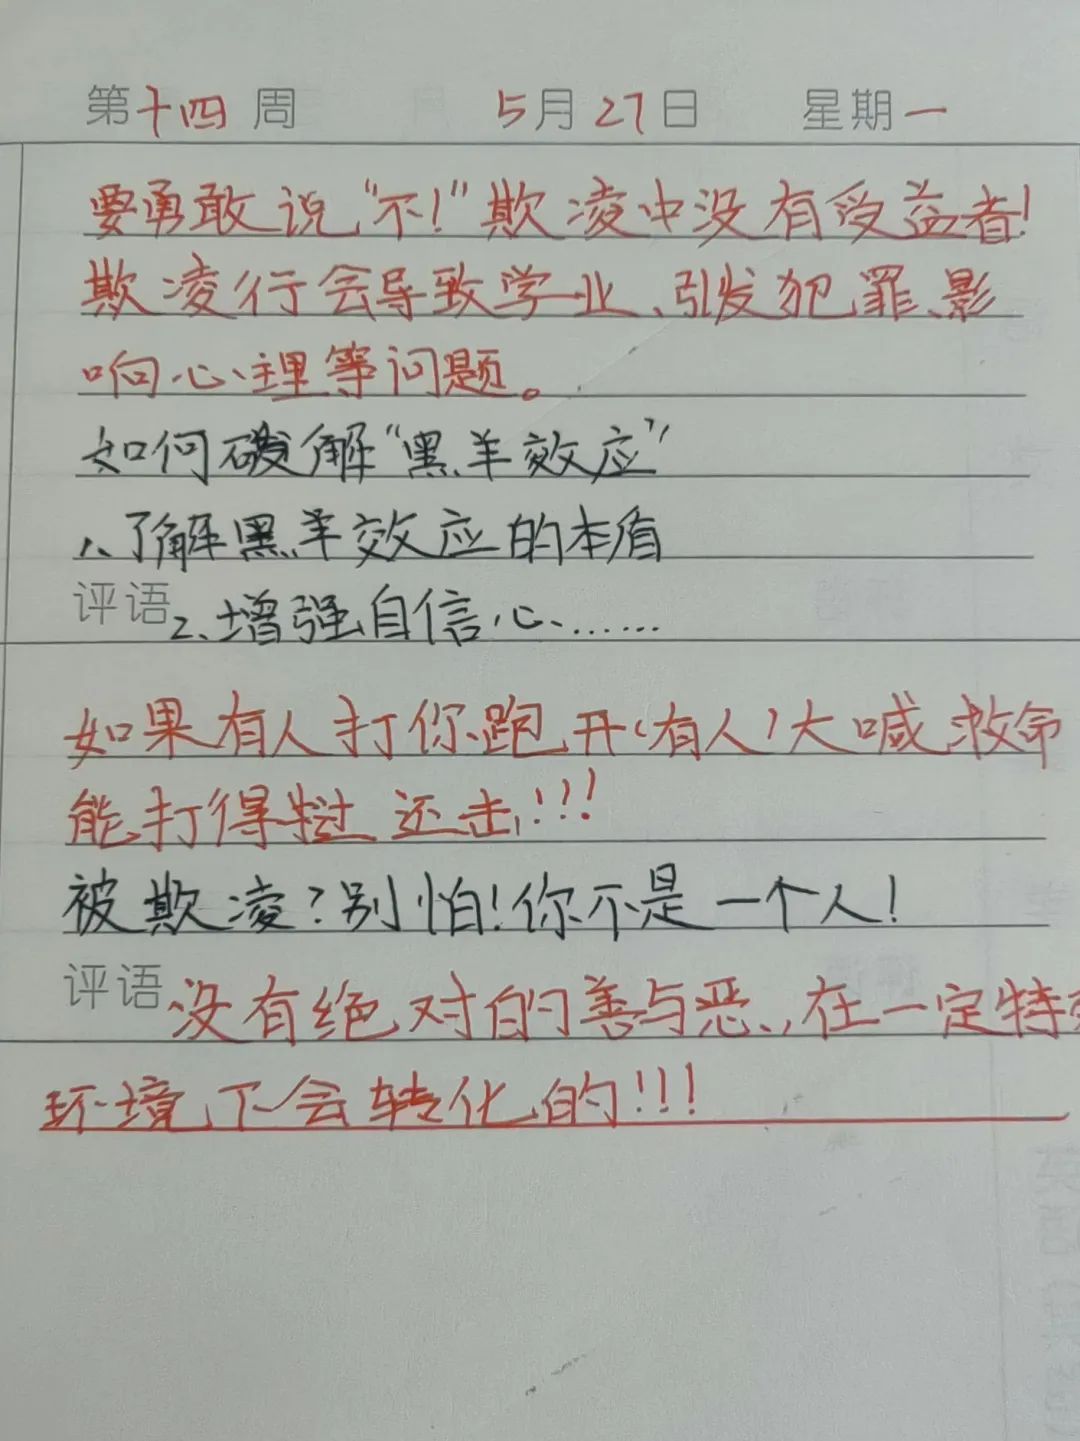 第十四周 5月27日 星期一
要勇敢说“不!”欺凌中没有受益者!
欺凌行会导致学业、引发犯罪、影
响心理等问题。
如何破解“黑羊效应”
1、了解黑羊效应的本质
评语 2、增强自信心、……
如果有人打你跑开(有人)大喊救命
能打得过 还击!!!
被欺凌?别怕!你不是一个人!
评语 没有绝对的善与恶、,在一定特
环境下会转化的!!!